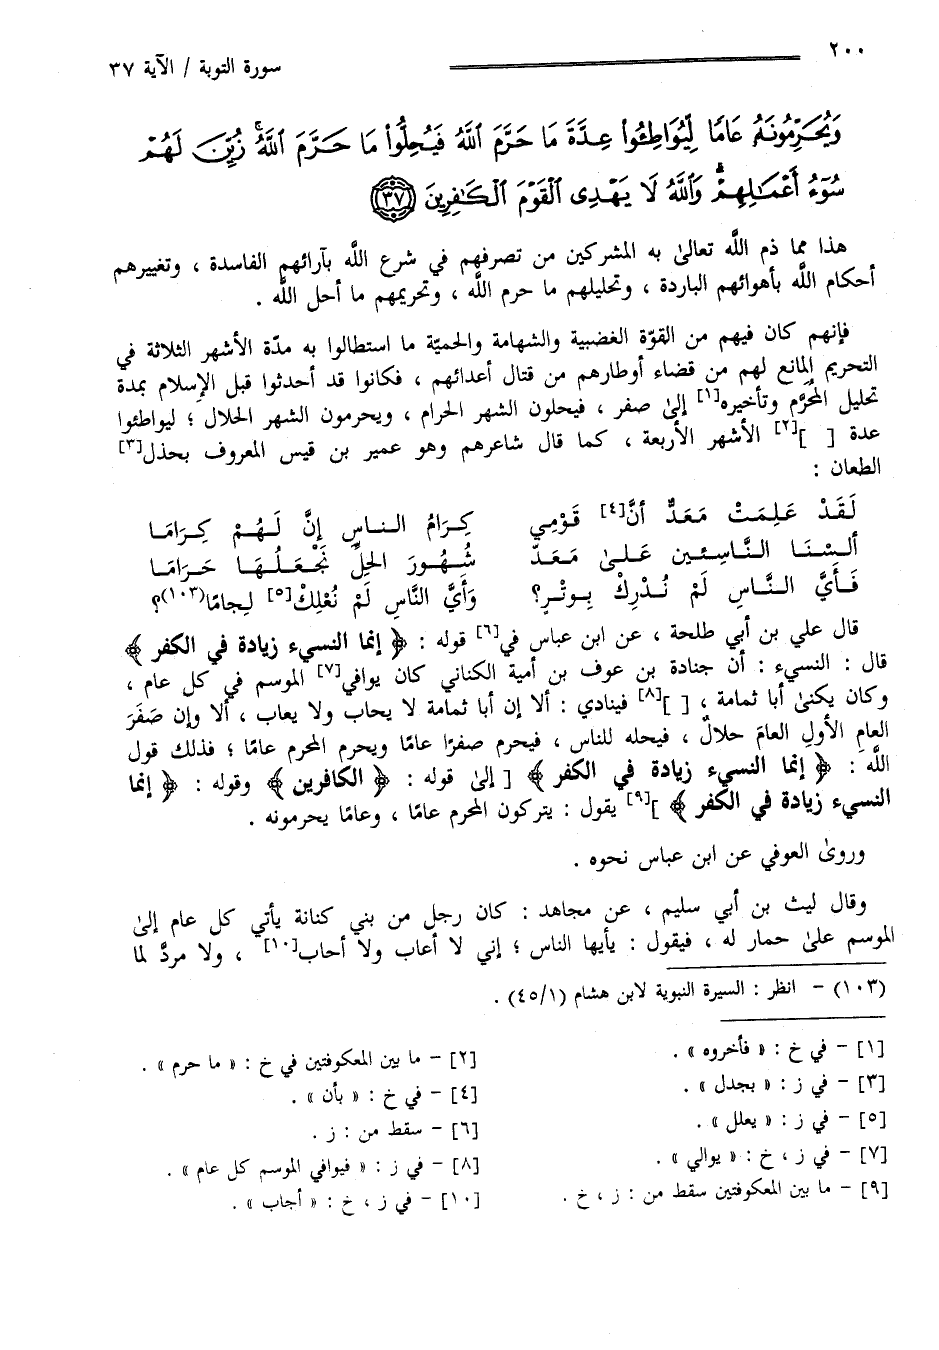 ٢٠٠
سورة التوبة / الآية ٣٧
وَيُحَرِّمُونَهُ عَامًا لِّيُوَاطِـُٔوا۟ عِدَّةَ مَا حَرَّمَ ٱللَّهُ فَيُحِلُّوا۟ مَا حَرَّمَ ٱللَّهُ ۚ زُيِّنَ لَهُمْ
سُوٓءُ أَعْمَـٰلِهِمْ ۗ وَٱللَّهُ لَا يَهْدِى ٱلْقَوْمَ ٱلْكَـٰفِرِينَ ﴿٣٧﴾
هذا مما ذم اللَّه تعالىٰ به المشركين من تصرفهم في شرع اللَّه بآرائهم الفاسدة ، وتغييرهم
أحكام اللَّه بأهوائهم الباردة ، وتحليلهم ما حرم اللَّه ، وتحريمهم ما أحل اللَّه .
فإنهم كان فيهم من القوّة الغضبية والشهامة والحميّة ما استطالوا به مدّة الأشهر الثلاثة في
التحريم المانع لهم من قضاء أوطارهم من قتال أعدائهم ، فكانوا قد أحدثوا قبل الإِسلام بمدة
تحليل المُحَرَّم وتأخيره[١] إلىٰ صفر ، فيحلون الشهر الحرام ، ويحرمون الشهر الحلال ؛ ليواطئوا
عدة [ ][٢] الأشهر الأربعة ، كما قال شاعرهم وهو عمير بن قيس المعروف بحذل[٣]
الطعان :
لَقَدْ عَلِمَتْ مَعَدٌّ أنَّ[٤] قَوْمِي كِرَامُ الناسِ إنَّ لَهُمْ كِرَامَا
ألسْنَا النَّاسِئين عَلىٰ مَعَدّ شُهُورَ الحِلِّ نَجْعَلُهَا حَرَامَا
فَأَيَّ النَّاسِ لَمْ نُدْرِكْ بِوتْرٍ؟ وَأَيَّ النَّاسِ لَمْ نُعْلِكْ[٥] لِجامًا(١٠٣)؟
قال علي بن أبي طلحة ، عن ابن عباس في[٦] قوله : ﴿ إنما النسيء زيادة في الكفر ﴾
قال : النسيء : أن جنادة بن عوف بن أمية الكناني كان يوافي[٧] الموسم في كل عام ،
وكان يكنىٰ أبا ثمامة ، [ ][٨] فينادي : ألا إن أبا ثمامة لا يحاب ولا يعاب ، ألا وإن صَفَرَ
العامِ الأولِ العامَ حلالٌ ، فيحله للناس ، فيحرم صفرًا عامًا ويحرم المحرم عامًا ؛ فذلك قول
اللَّه : ﴿ إنما النسيء زيادة في الكفر ﴾ [ إلىٰ قوله : ﴿ الكافرين ﴾ وقوله : ﴿ إنما
النسيء زيادة في الكفر ﴾ ][٩] يقول : يتركون المحرم عامًا ، وعامًا يحرمونه .
وروىٰ العوفي عن ابن عباس نحوه .
وقال ليث بن أبي سليم ، عن مجاهد : كان رجل من بني كنانة يأتي كل عام إلىٰ
الموسم علىٰ حمار له ، فيقول : يأيها الناس ؛ إني لا أعاب ولا أحاب[١٠] ، ولا مردَّ لما
(١٠٣) - انظر : السيرة النبوية لابن هشام (٤٥/١) .
[١] - في خ : « فأخروه » .
[٢] - ما بين المعكوفتين في خ : « ما حرم » .
[٣] - في ز : « بجدل » .
[٤] - في خ : « بأن » .
[٥] - في ز : « يعلل » .
[٦] - سقط من : ز .
[٧] - في ز ، خ : « يوالي » .
[٨] - في ز : « فيوافي الموسم كل عام » .
[٩] - ما بين المعكوفتين سقط من : ز ، خ .
[١٠] - في ز ، خ : « أجاب » .